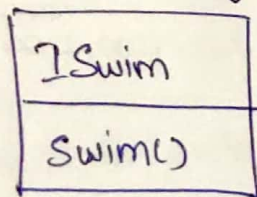 ISwim
Swim()